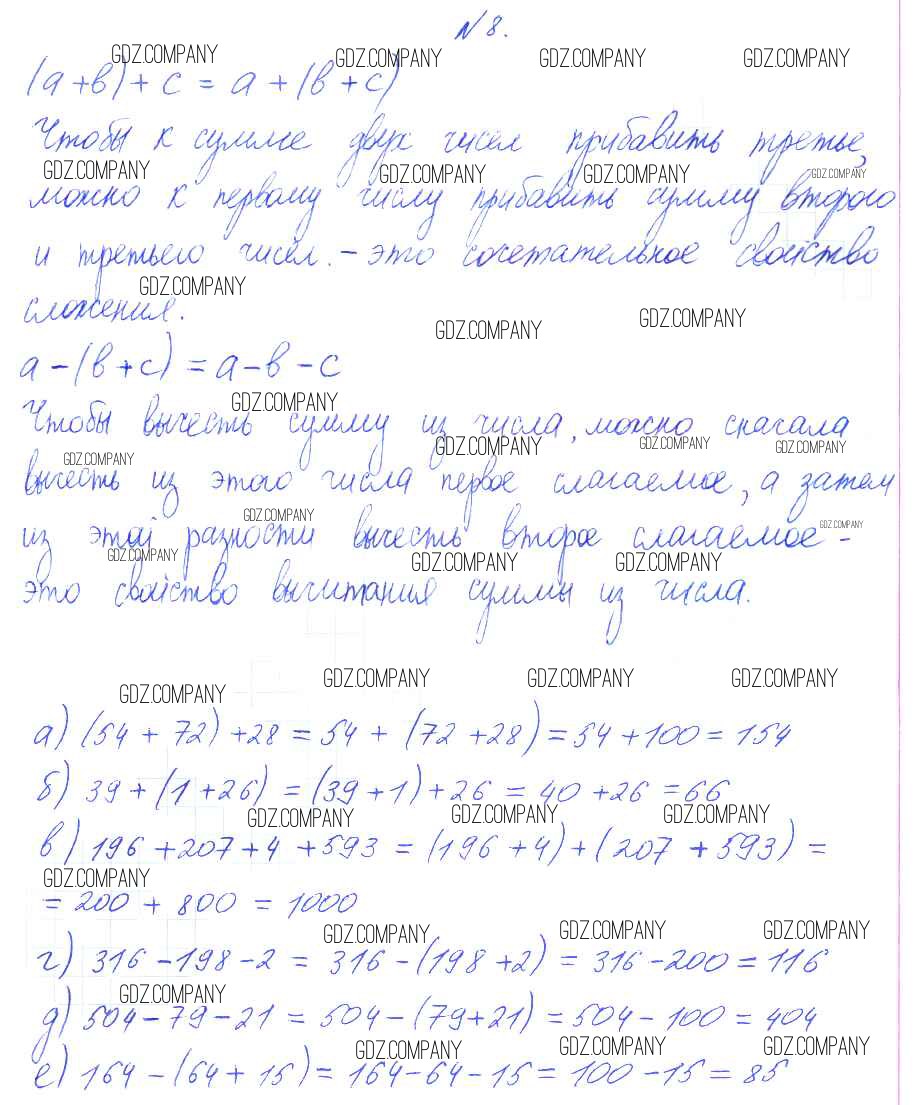 N 8.
GDZ.COMPANY GDZ.COMPANY GDZ.COMPANY GDZ.COMPANY
(а+в)+с = а+(в+с)
Чтобы к сумме двух чисел прибавить третье,
GDZ.COMPANY GDZ.COMPANY GDZ.COMPANY GDZ.COMPANY
можно к первому числу прибавить сумму второго
и третьего чисел. – это сочетательное свойство
GDZ.COMPANY
сложения.
GDZ.COMPANY GDZ.COMPANY
а-(в+с) = а-в-с
GDZ.COMPANY
Чтобы вычесть сумму из числа, можно сначала
GDZ.COMPANY GDZ.COMPANY GDZ.COMPANY GDZ.COMPANY
вычесть из этого числа первое слагаемое, а затем
GDZ.COMPANY GDZ.COMPANY
из этой разности вычесть второе слагаемое –
GDZ.COMPANY GDZ.COMPANY GDZ.COMPANY
это свойство вычитания суммы из числа.
GDZ.COMPANY GDZ.COMPANY GDZ.COMPANY GDZ.COMPANY
а) (54 + 72) +28 = 54 + (72 +28) = 54 +100 = 154
б) 39 + (1 +26) = (39 +1) + 26 = 40 +26 = 66
GDZ.COMPANY GDZ.COMPANY GDZ.COMPANY
в) 196 +207+4 +593 = (196 +4) + (207 + 593) =
GDZ.COMPANY
= 200 + 800 = 1000
GDZ.COMPANY GDZ.COMPANY GDZ.COMPANY
г) 316 -198 -2 = 316 -(198 +2) = 316 -200 = 116
GDZ.COMPANY
д) 504 - 79 - 21 = 504 - (79+21) = 504 - 100 = 404
GDZ.COMPANY GDZ.COMPANY GDZ.COMPANY
е) 164 - (64 + 15) = 164-64-15 = 100 -15 = 85